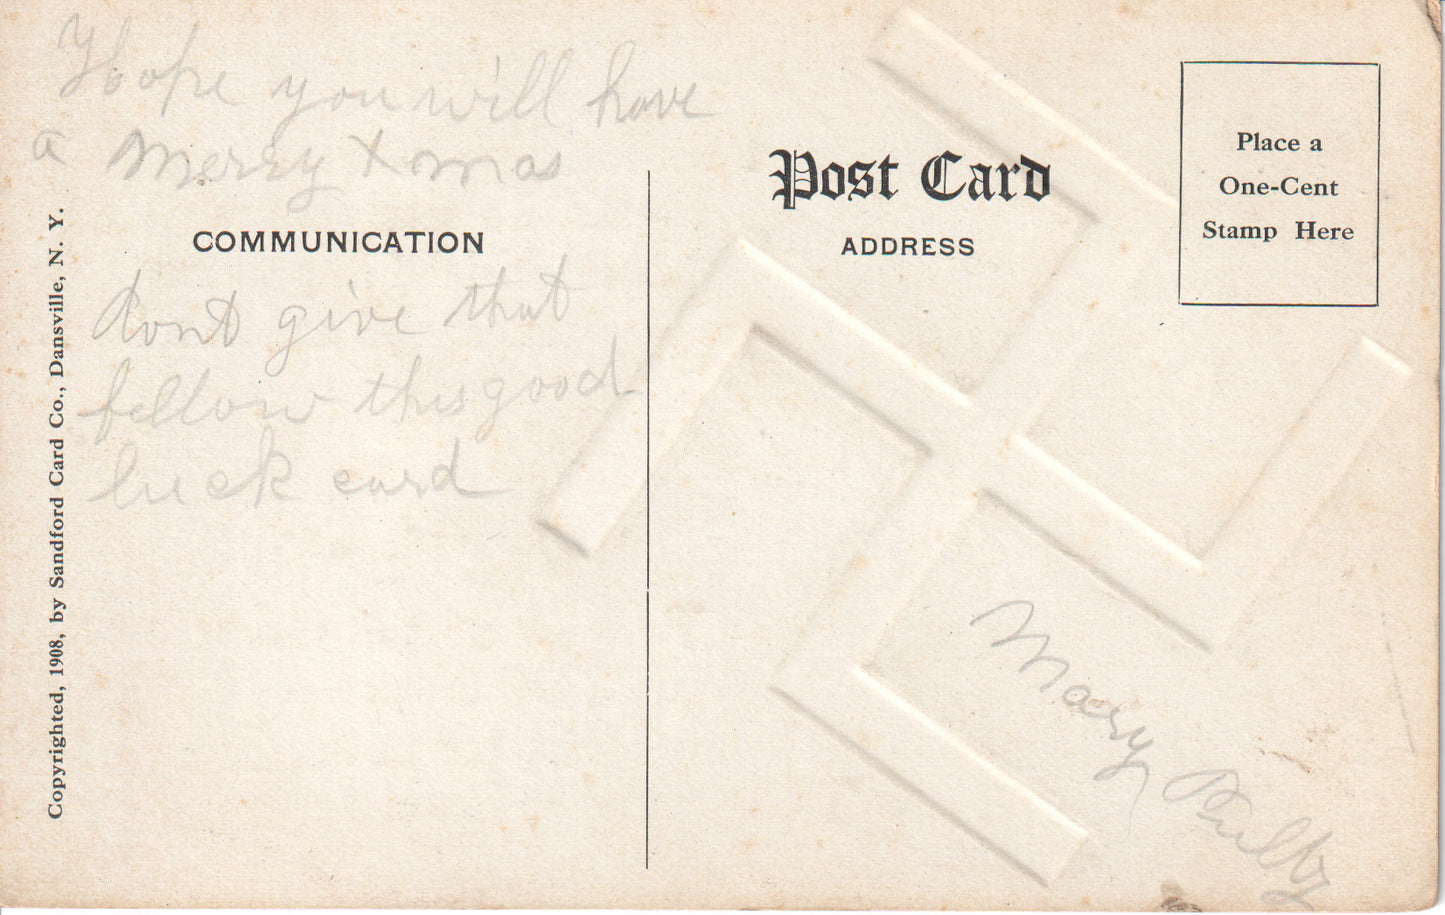 Hope you will have
a Merry Xmas
Post Card
COMMUNICATION
ADDRESS
Place a
One-Cent
Stamp Here
dont give that
fellow this good
luck card
Copyrighted, 1908, by Sandford Card Co., Dansville, N. Y.
Mary